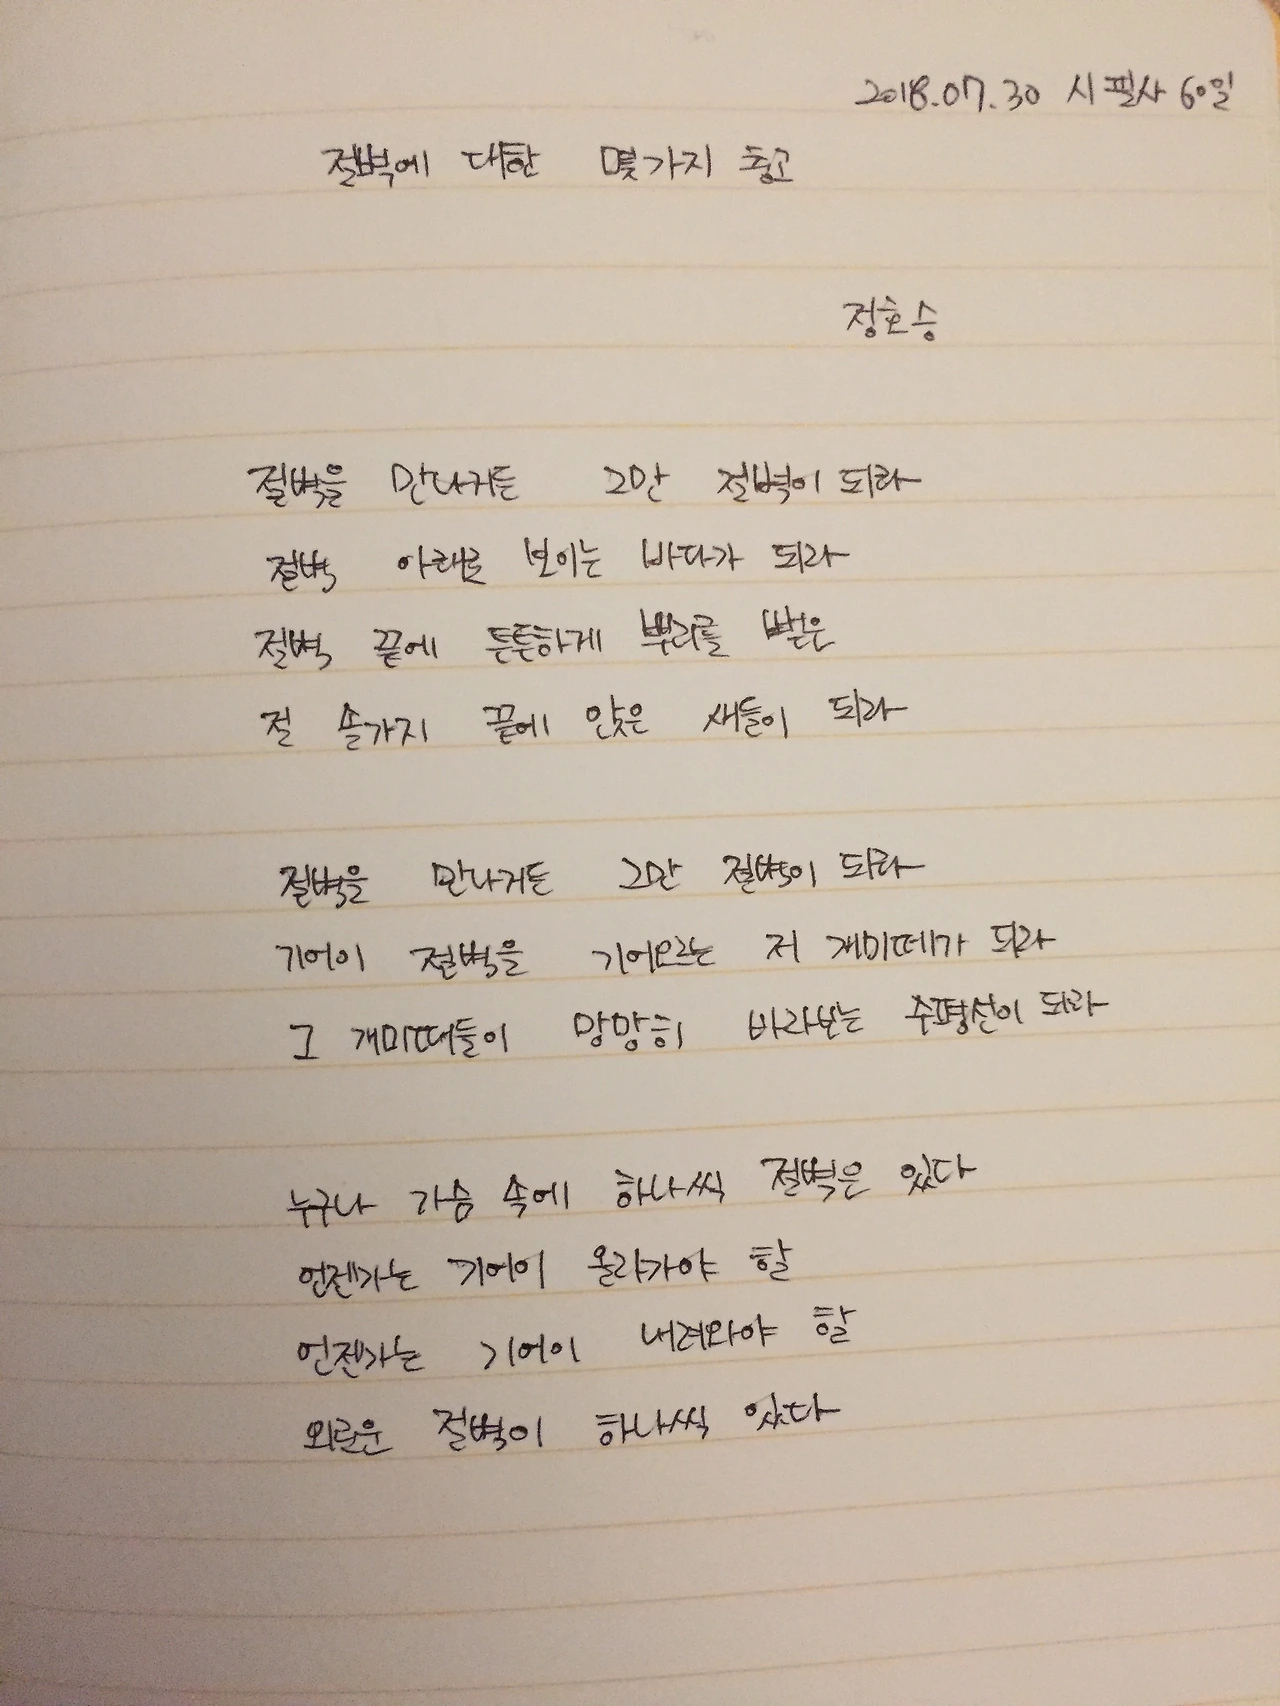 2018.07.30 시필사 60일
절벽에 대한 몇가지 충고
정호승
절벽을 만나거든 그만 절벽이 되라
절벽 아래로 보이는 바다가 되라
절벽 끝에 튼튼하게 뿌리를 뻗은
절 솔가지 끝에 앉은 새들이 되라
절벽을 만나거든 그만 절벽이 되라
기어이 절벽을 기어오르는 저 개미떼가 되라
그 개미떼들이 망망히 바라보는 수평선이 되라
누구나 가슴 속에 하나씩 절벽은 있다
언젠가는 기어이 올라가야 할
언젠가는 기어이 내려와야 할
외로운 절벽이 하나씩 있다